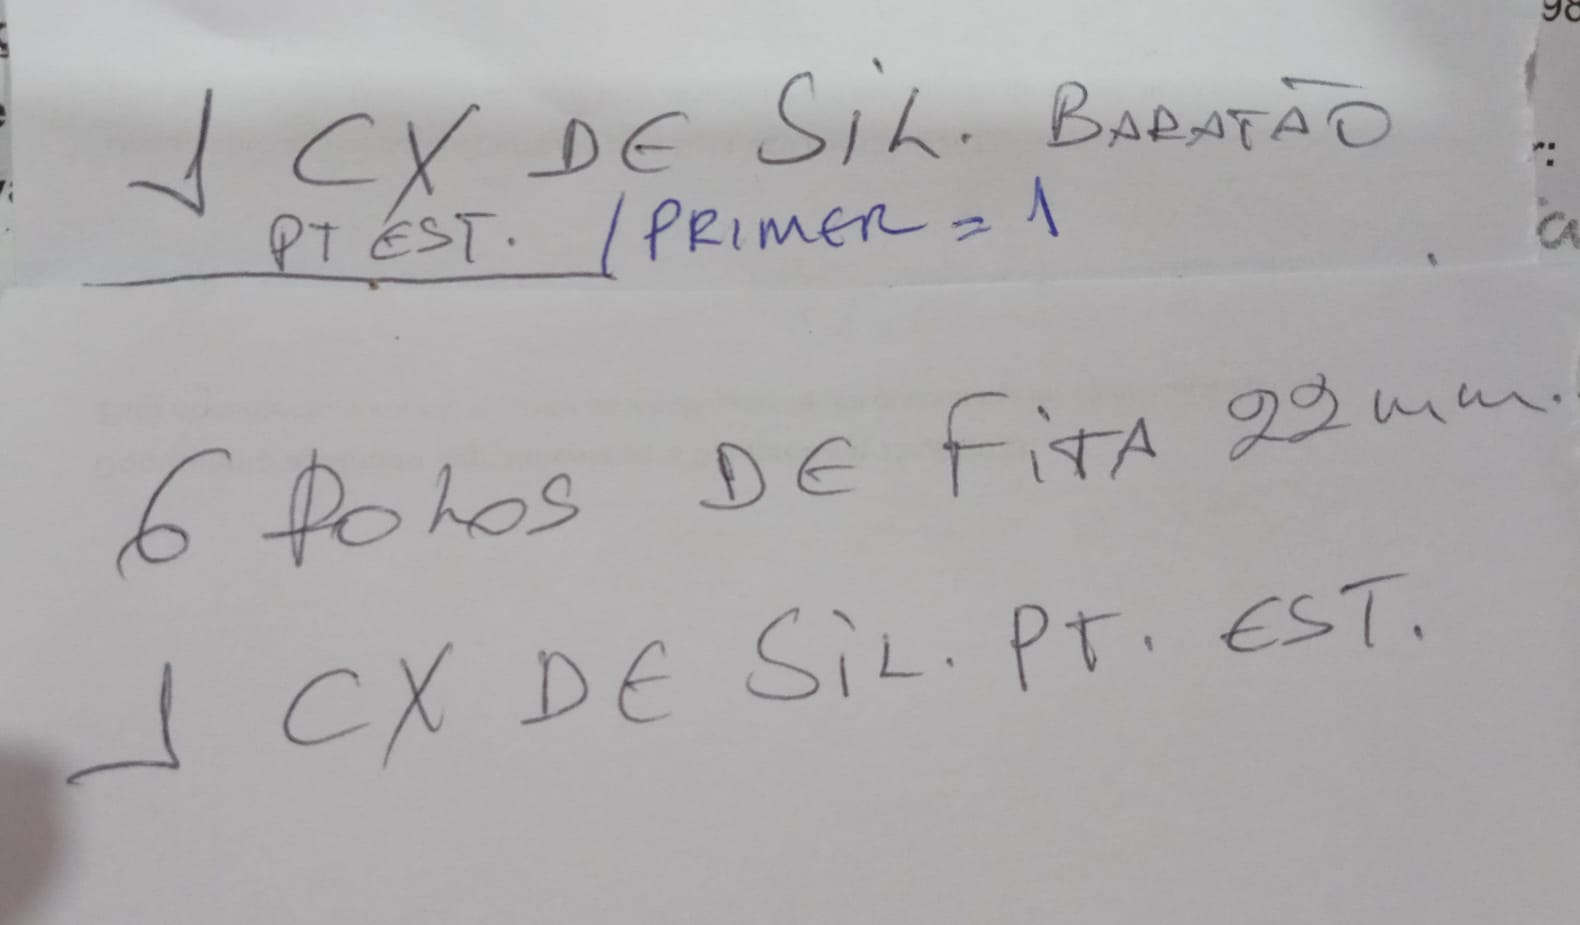 1 CX DE SiL. BARATÃO
PT EST. / PRIMER = 1
6 Rolos DE FiTA 22 mm.
1 CX DE SiL. PT. EST.